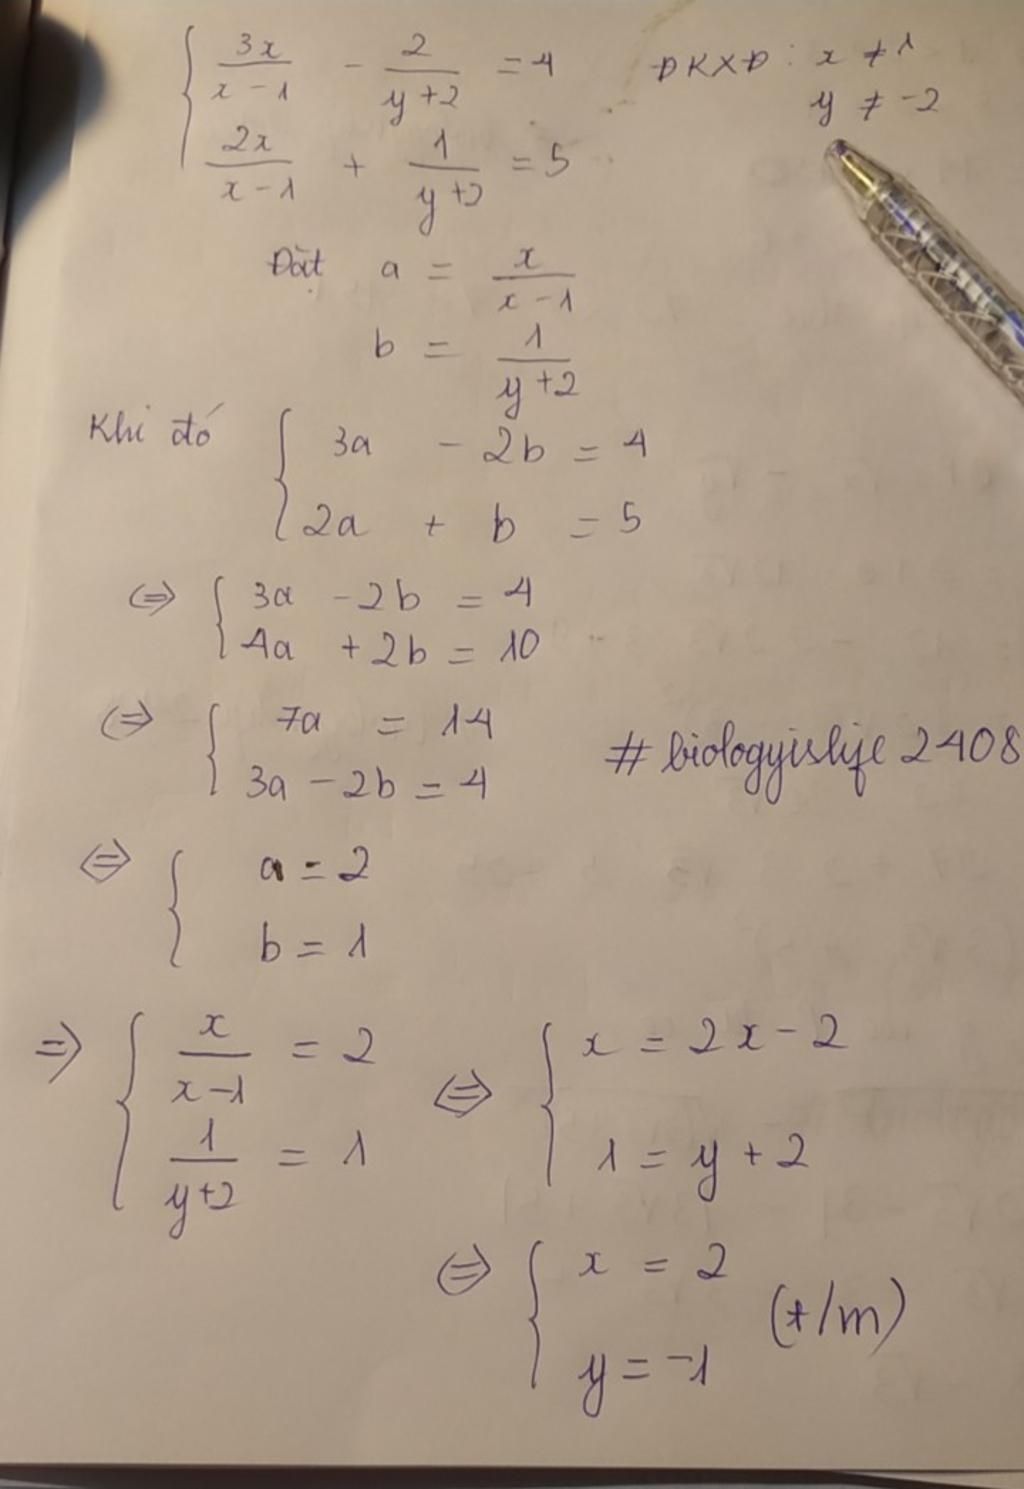 { 3x/(x-1) - 2/(y+2) = 4 ĐKXĐ: x ≠ 1
y ≠ -2
2x/(x-1) + 1/(y+2) = 5
Đặt a = x/(x-1)
b = 1/(y+2)
Khi đó { 3a - 2b = 4
2a + b = 5
⇔ { 3a - 2b = 4
4a + 2b = 10
⇔ { 7a = 14
3a - 2b = 4
#biologyislife2408
⇔ { a = 2
b = 1
⇒ { x/(x-1) = 2 ⇔ { x = 2x - 2
1/(y+2) = 1 1 = y + 2
⇔ { x = 2
y = -1 (t/m)